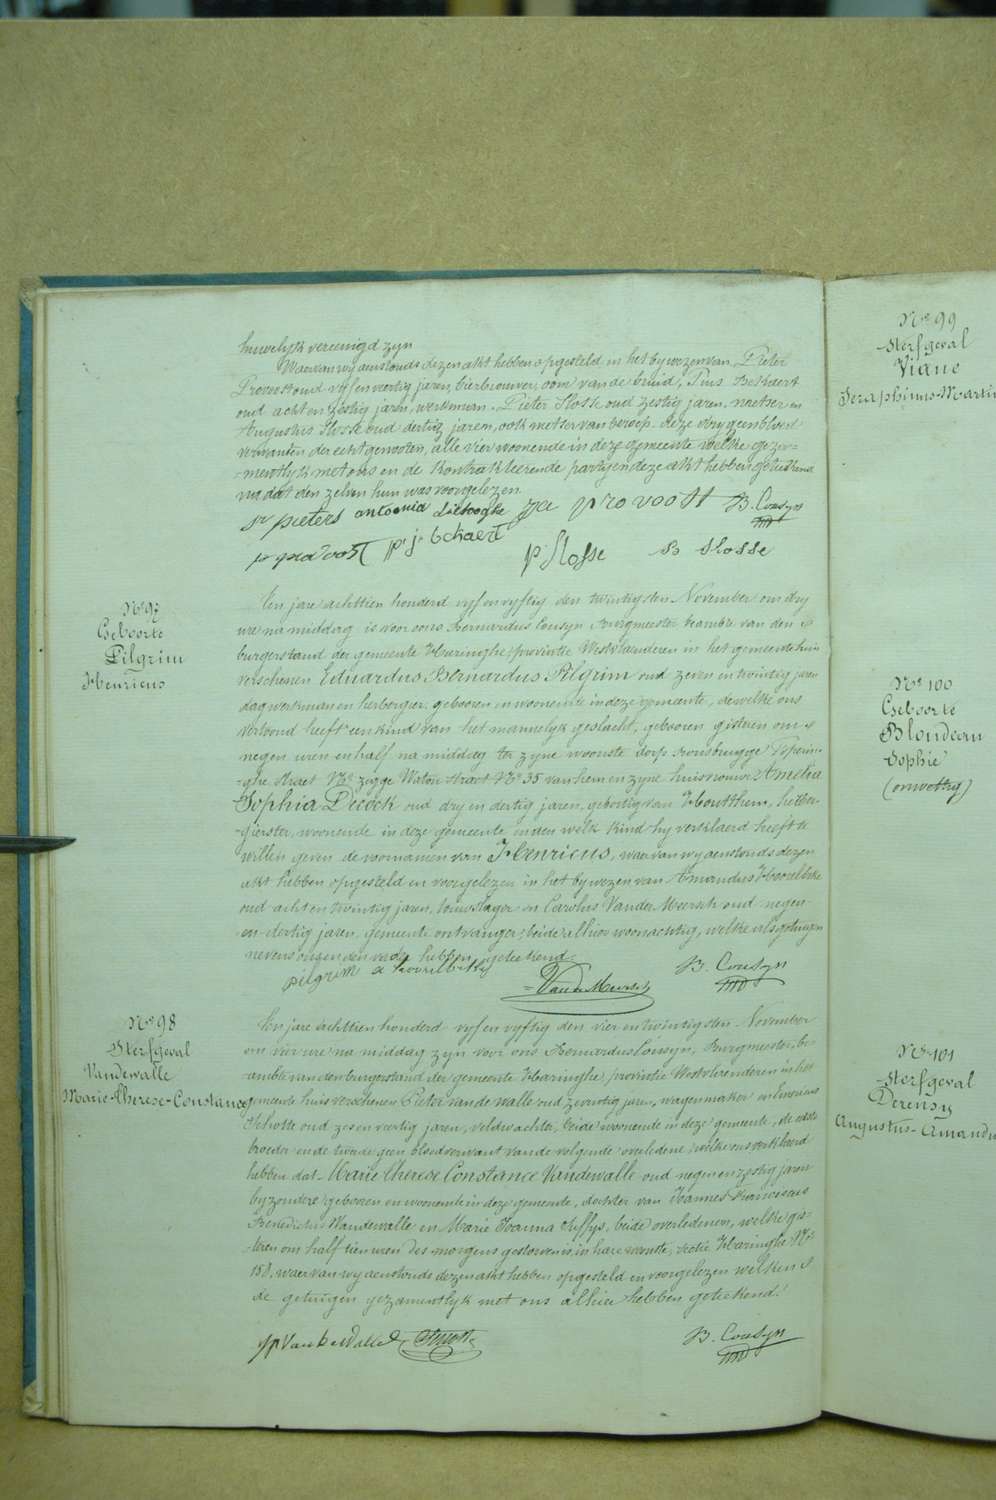 huwelyk vereenigd zyn
Waervan wy aenstonds dezen akt hebben opgesteld in het bywezen van Pieter
Provoost oud vyf en veertig jaren, bierbrouwer, oom van de bruid, Pius Bekaert
oud acht en zestig jaren, werkman, Pieter Slosse oud zestig jaren, metser en
Augustus Slosse oud dertig jaren, ook metser van beroep, deze dry geen bloed
verwanten der echtgenooten, alle vier woonende in deze gemeente welke gezae-
-mentlyk met ons en de kontrakteerende partyen deze akt hebben geteekend
na dat den zelven hun was voorgelezen.
pieters antoonia Liebooghe provoost B. Cousyn
provoost p j bekaert p Slosse Slosse
No 97
Geboorte
Pilgrim
Henricus
Een jare achttien honderd vyf en vyftig den twintigsten November om dry
ure na middag is voor ons Bernardus Cousyn Burgmeester Ambte van den
burgerstand der gemeente Haringhe, provintie Westvlaenderen in het gemeentehuis
verschenen Eduardus Bernardus Pilgrim oud zeven en twintig jaren
dagwerkman en herbergier, gebooren en woonende in deze gemeente, dewelke ons
vertoond heeft een kind van het mannelyk geslacht, gebooren gisteren om
negen uren en half na middag ter zyne woonste dorp Rousbrugge Poperin-
-ghe straet No zegge Watou straet No 35 van hem en zyne huisvrouw Amelia
Sophia Decock oud dry en dertig jaren, geboortig van Houtthem, herber-
-gierster, woonende in deze gemeente, en den welk kind hy verklaerd heeft te
willen geven de voornamen van Henricus, waervan wy aenstonds dezen
akt hebben opgesteld en voorgelezen in het bywezen van Amandus Hoorelbeke
oud acht en twintig jaren, touwslager en Carolus Vander Meersch oud negen-
-en-dertig jaren, gemeente ontvanger, beide alhier woonachtig, welke als getuigen
nevens ons en den vader hebben geteekend.
pilgrim a hoorelbeke Vander Meersch B. Cousyn
No 98
Sterfgeval
Vandewalle
Marie-Therese-Constance
Een jare achttien honderd vyf en vyftig den vier en twintigsten November
om vier ure na middag zyn voor ons Bernardus Cousyn, Burgmeester,
ambte van den burgerstand der gemeente Haringhe, provintie Westvlaenderen in het
gemeente huis verschenen Pieter van de walle oud zeventig jaren, wagenmaker en Livinus
Schotte oud zes en veertig jaren, veldwachter, beide woonende in deze gemeente, de eerste
broeder en de tweede geen bloedverwant van de volgende overledene, welke ons verklaerd
hebben dat Marie Therese Constance Vandewalle oud negen en zestig jaren
byzondere, gebooren en woonende in deze gemeente, dochter van Joannes Franciscus
Benedictus Vandewalle en Marie Joanna, beide overledenen, welke gis-
-teren om half tien uren des morgens gestorven is, in hare woonste, sectie Haringhe No
158, waervan wy aenstonds dezen akt hebben opgesteld en voorgelezen welken
de getuigen gezamentlyk met ons alhier hebben geteekend.
p Van De Walle Schotte B. Cousyn
No 99
Sterfgeval
Viane
Seraphinus-Martin
No 100
Geboorte
Blondeau
Sophie
(onwettig)
No 101
Sterfgeval
Derensy
Augustus-Amandu